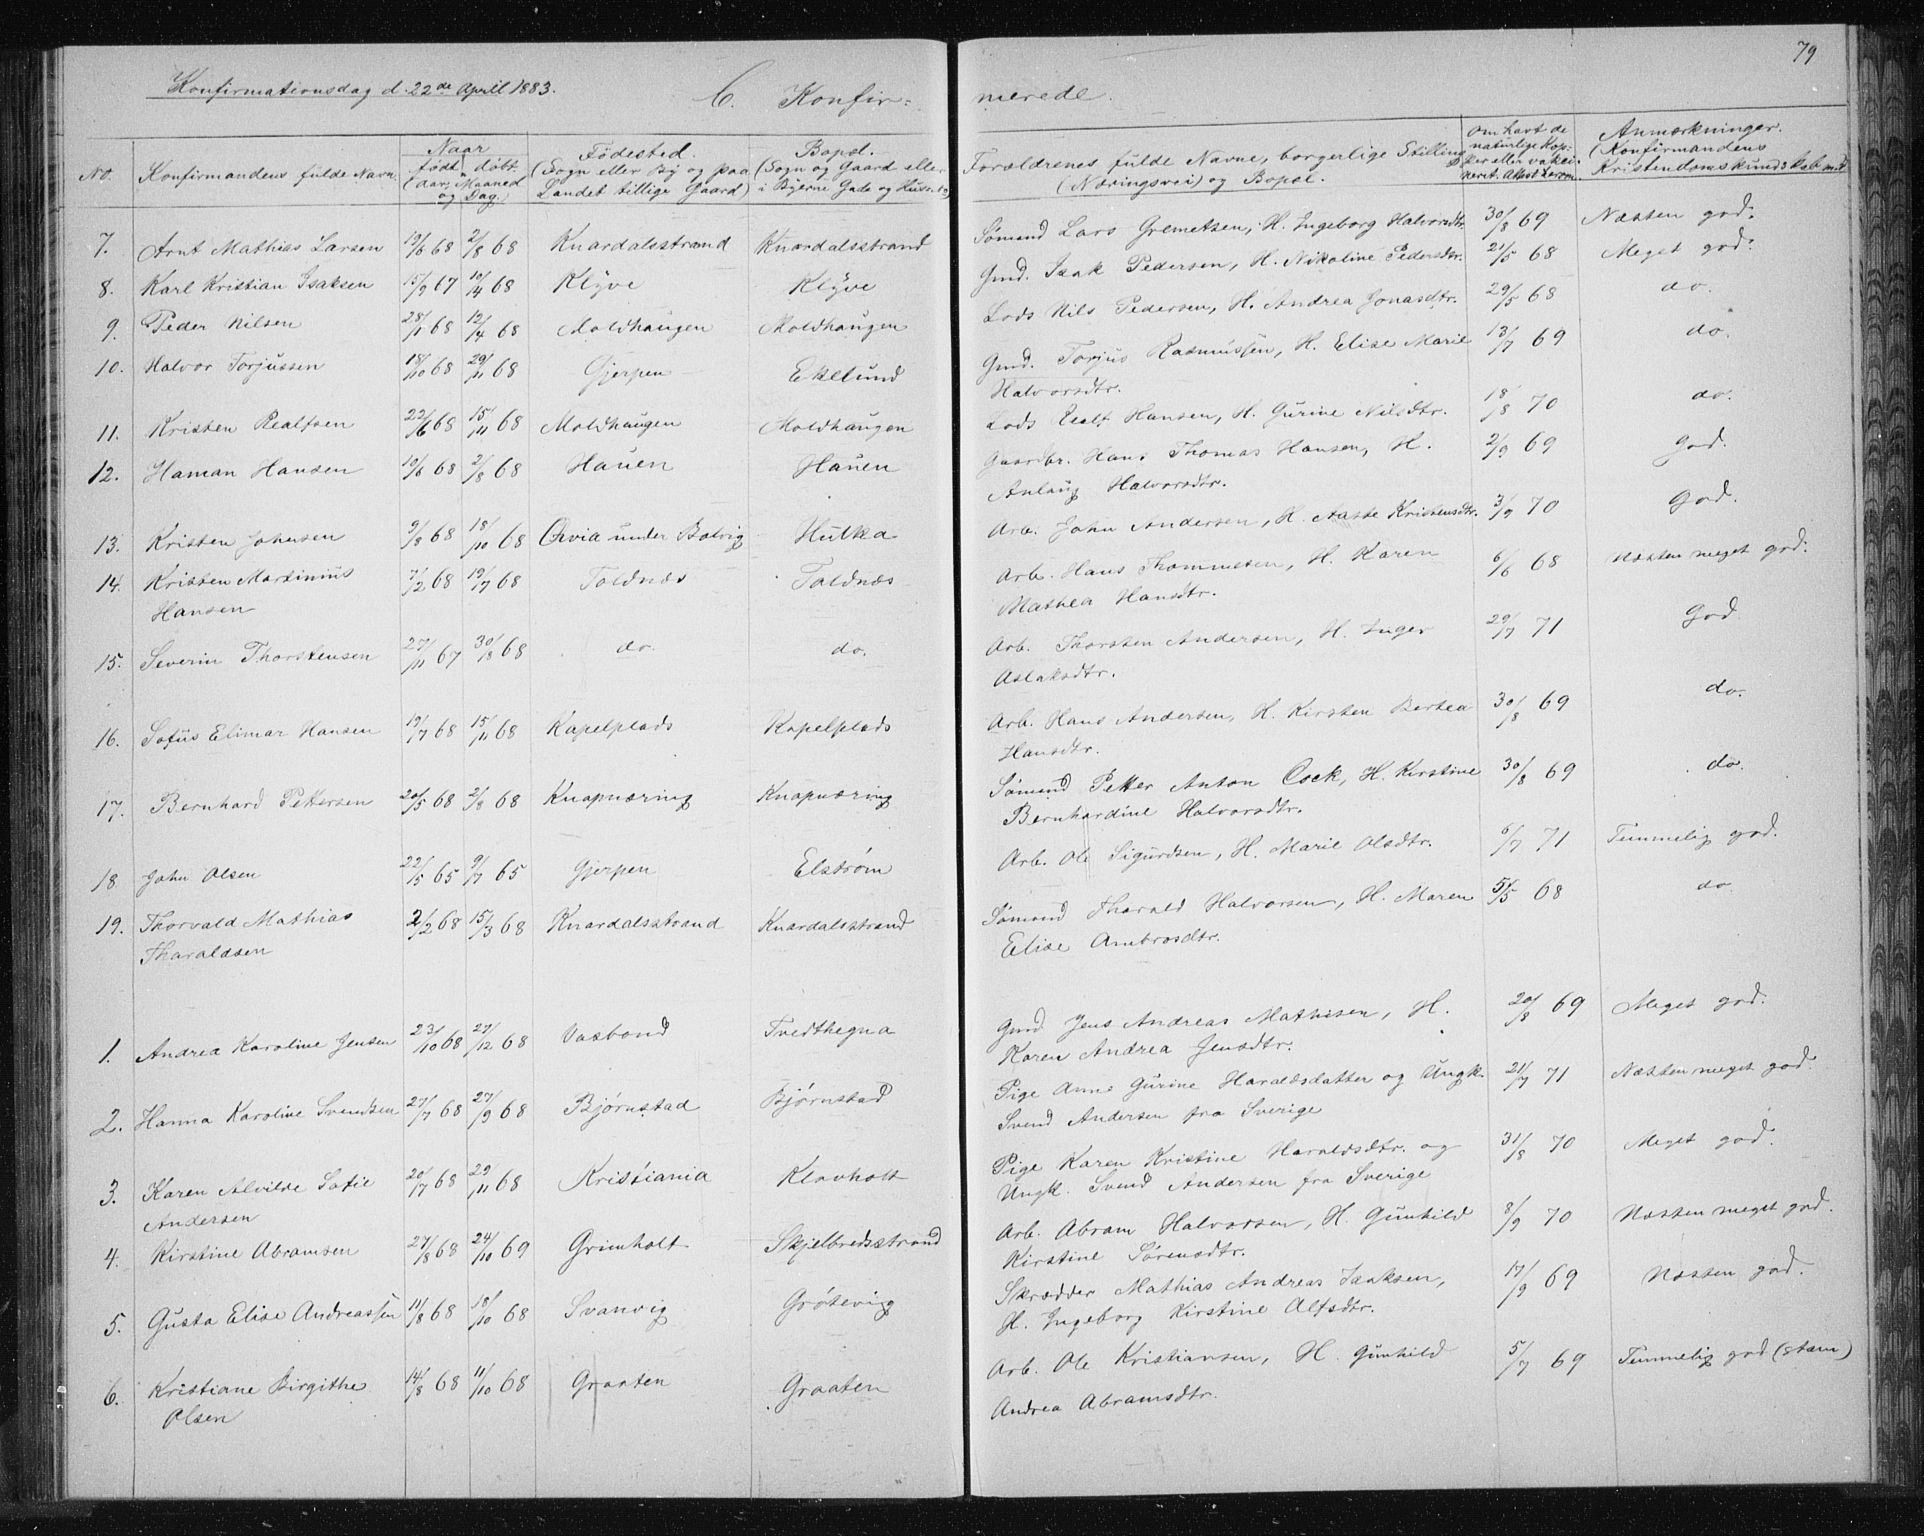 79
Konfirmationsdag d. 22de April 1883.
C. Konfir= merede.
No. Konfirmandens fulde Navn. Naar født, døbt. (Aar, Maaned og Dag.) Fødested. (Sogn eller By og paa Landet tillige Gaard) Bopæl. (Sogn og Gaard eller i Byerne Gade og Huse No) Forældrenes fulde Navne, borgerlige Stilling (Næringsvei) og Bopæl. Om havt de naturlige Kopper eller vakcineret. Attest herom. Anmærkninger. (Konfirmandens Kristendomskundskab m.v.)
7. Arnt Mathias Larsen 19/6 68 2/8 68 Knardalsstrand Knardalsstrand Sømand Lars Gremetsen, H. Ingeborg Halvorsdtr. 30/8 69 Næsten god.
8. Karl Kristian Isaksen 15/9 67 10/4 68 Klyve Klyve Gmd. Isak Pedersen, H. Nikoline Pedersdtr. 21/5 68 Meget god.
9. Peder Nilsen 28/1 68 12/4 68 Moldhaugen Moldhaugen Lods Nils Pedersen, H. Andrea Jonasdtr. 29/5 68 do.
10. Halvor Torjussen 18/10 68 29/11 68 Gjerpen Eklund Gmd. Torjus Rasmussen, H. Elise Marie 13/7 69 do.
Halvorsdtr.
11. Kristen Realfsen 22/6 68 15/11 68 Moldhaugen Moldhaugen Lods Realf Hansen, H. Gurine Nilsdtr. 18/8 70 do.
12. Haman Hansen 19/6 68 2/8 68 Hauen Hauen Gaardbr. Hans Thomas Hansen, H. 2/9 69 God.
Anlaug Halvorsdtr.
13. Kristen Johnsen 9/8 68 18/10 68 Ørvia under Bolvig Hulka Arb. John Andersen, H. Aaste Kristensdtr. 3/9 70 God.
14. Kristen Martinius 7/2 68 19/7 68 Toldnæs Toldnæs Arb. Hans Thommesen, H. Karen 6/6 68 Næsten meget god.
Hansen Mathea Hansdtr.
15. Severin Thorstensen 27/11 67 30/8 68 do. do. Arb. Thorsten Andersen, H. Inger 29/7 71 God
Aslaksdtr.
16. Sofus Elimar Hansen 19/7 68 15/11 68 Kapelplads Kapelplads Arb. Hans Andersen, H. Kirsten Bertea 30/8 69 do.
Hansdtr.
17. Bernhard Pettersen 20/5 68 2/8 68 Knapnæring Knapnæring Sømand Petter Anton Cock, H. Kirstine 30/8 69 do.
Bernhardine Halvorsdtr.
18 John Olsen 22/5 65 9/7 65 Gjerpen Elstrøm Arb. Ole Sigurdsen, H. Marie Olsdtr. 6/7 71 Temmelig god.
19. Thorvald Mathias 2/2 68 15/3 68 Knardalsstrand Knardalsstrand Sømand Tharald Halvorsen, H. Maren 5/5 68 do
Tharaldsen Elise Ambrosdtr.
1. Andrea Karoline Jensen 23/10 68 27/12 68 Vasbond Tvedthegna Gmd. Jens Andreas Mathisen, H. 20/8 69 Meget god.
Karen Andrea Jensdtr.
2. Hanna Karoline Svendsen 27/7 68 27/9 68 Bjørnstad Bjørnstad Pige Anne Gurine Haraldsdatter og Ungk. 21/7 71 Næsten meget god.
Svend Andersen fra Sverige
3. Karen Alvilde Sofie 20/7 68 29/11 68 Kristiania Klovholt Pige Karen Kristine Haraldsdtr. og 31/8 70 Meget god.
Andersen Ungk. Svend Andersen fra Sverige
4. Kirstine Abramsen 27/8 68 24/10 69 Grimholt Skjelbredsstrand Arb. Abram Halvorsen, H. Gunhild 8/9 70 Næsten meget god.
Kirstine Sørensdtr.
5. Gusta Elise Andreassen 11/8 68 18/10 68 Svanvig Grøtevig Skrædder Mathias Andreas Isaksen, 17/9 69 Næsten god.
H. Ingeborg Kirstine Alfsdtr.
6. Kristiane Birgithe 14/8 68 11/10 68 Graaten Graaten Arb. Ole Kristiansen, H. Gunhild 5/7 69 Temmelig god (stam)
Olsen Andrea Abramsdtr.